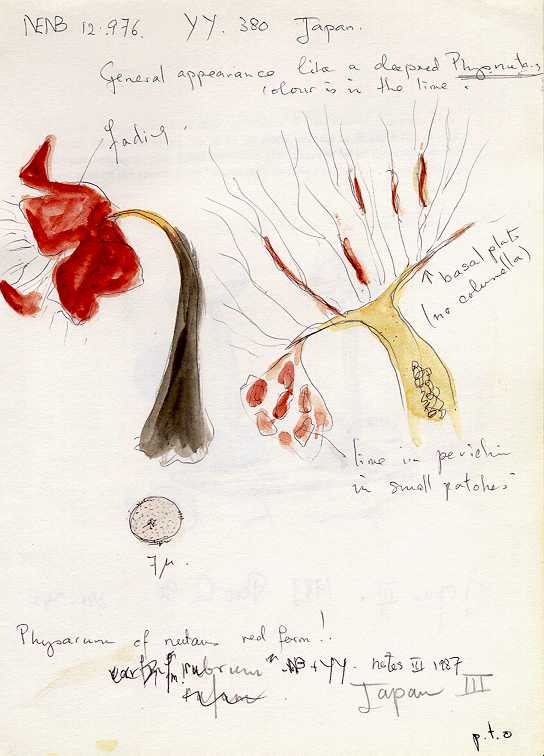 NENB 12.976. YY. 380 Japan.
General appearance like a deep red Phys nutans
colour is in the lime.
fading.
↑ basal plate
(no columella)
lime in peridium
in small patches
7 µ.
Physarum cf nutans red form!!
rubrum NB + YY. notes III 1987
Japan III
p.t.o